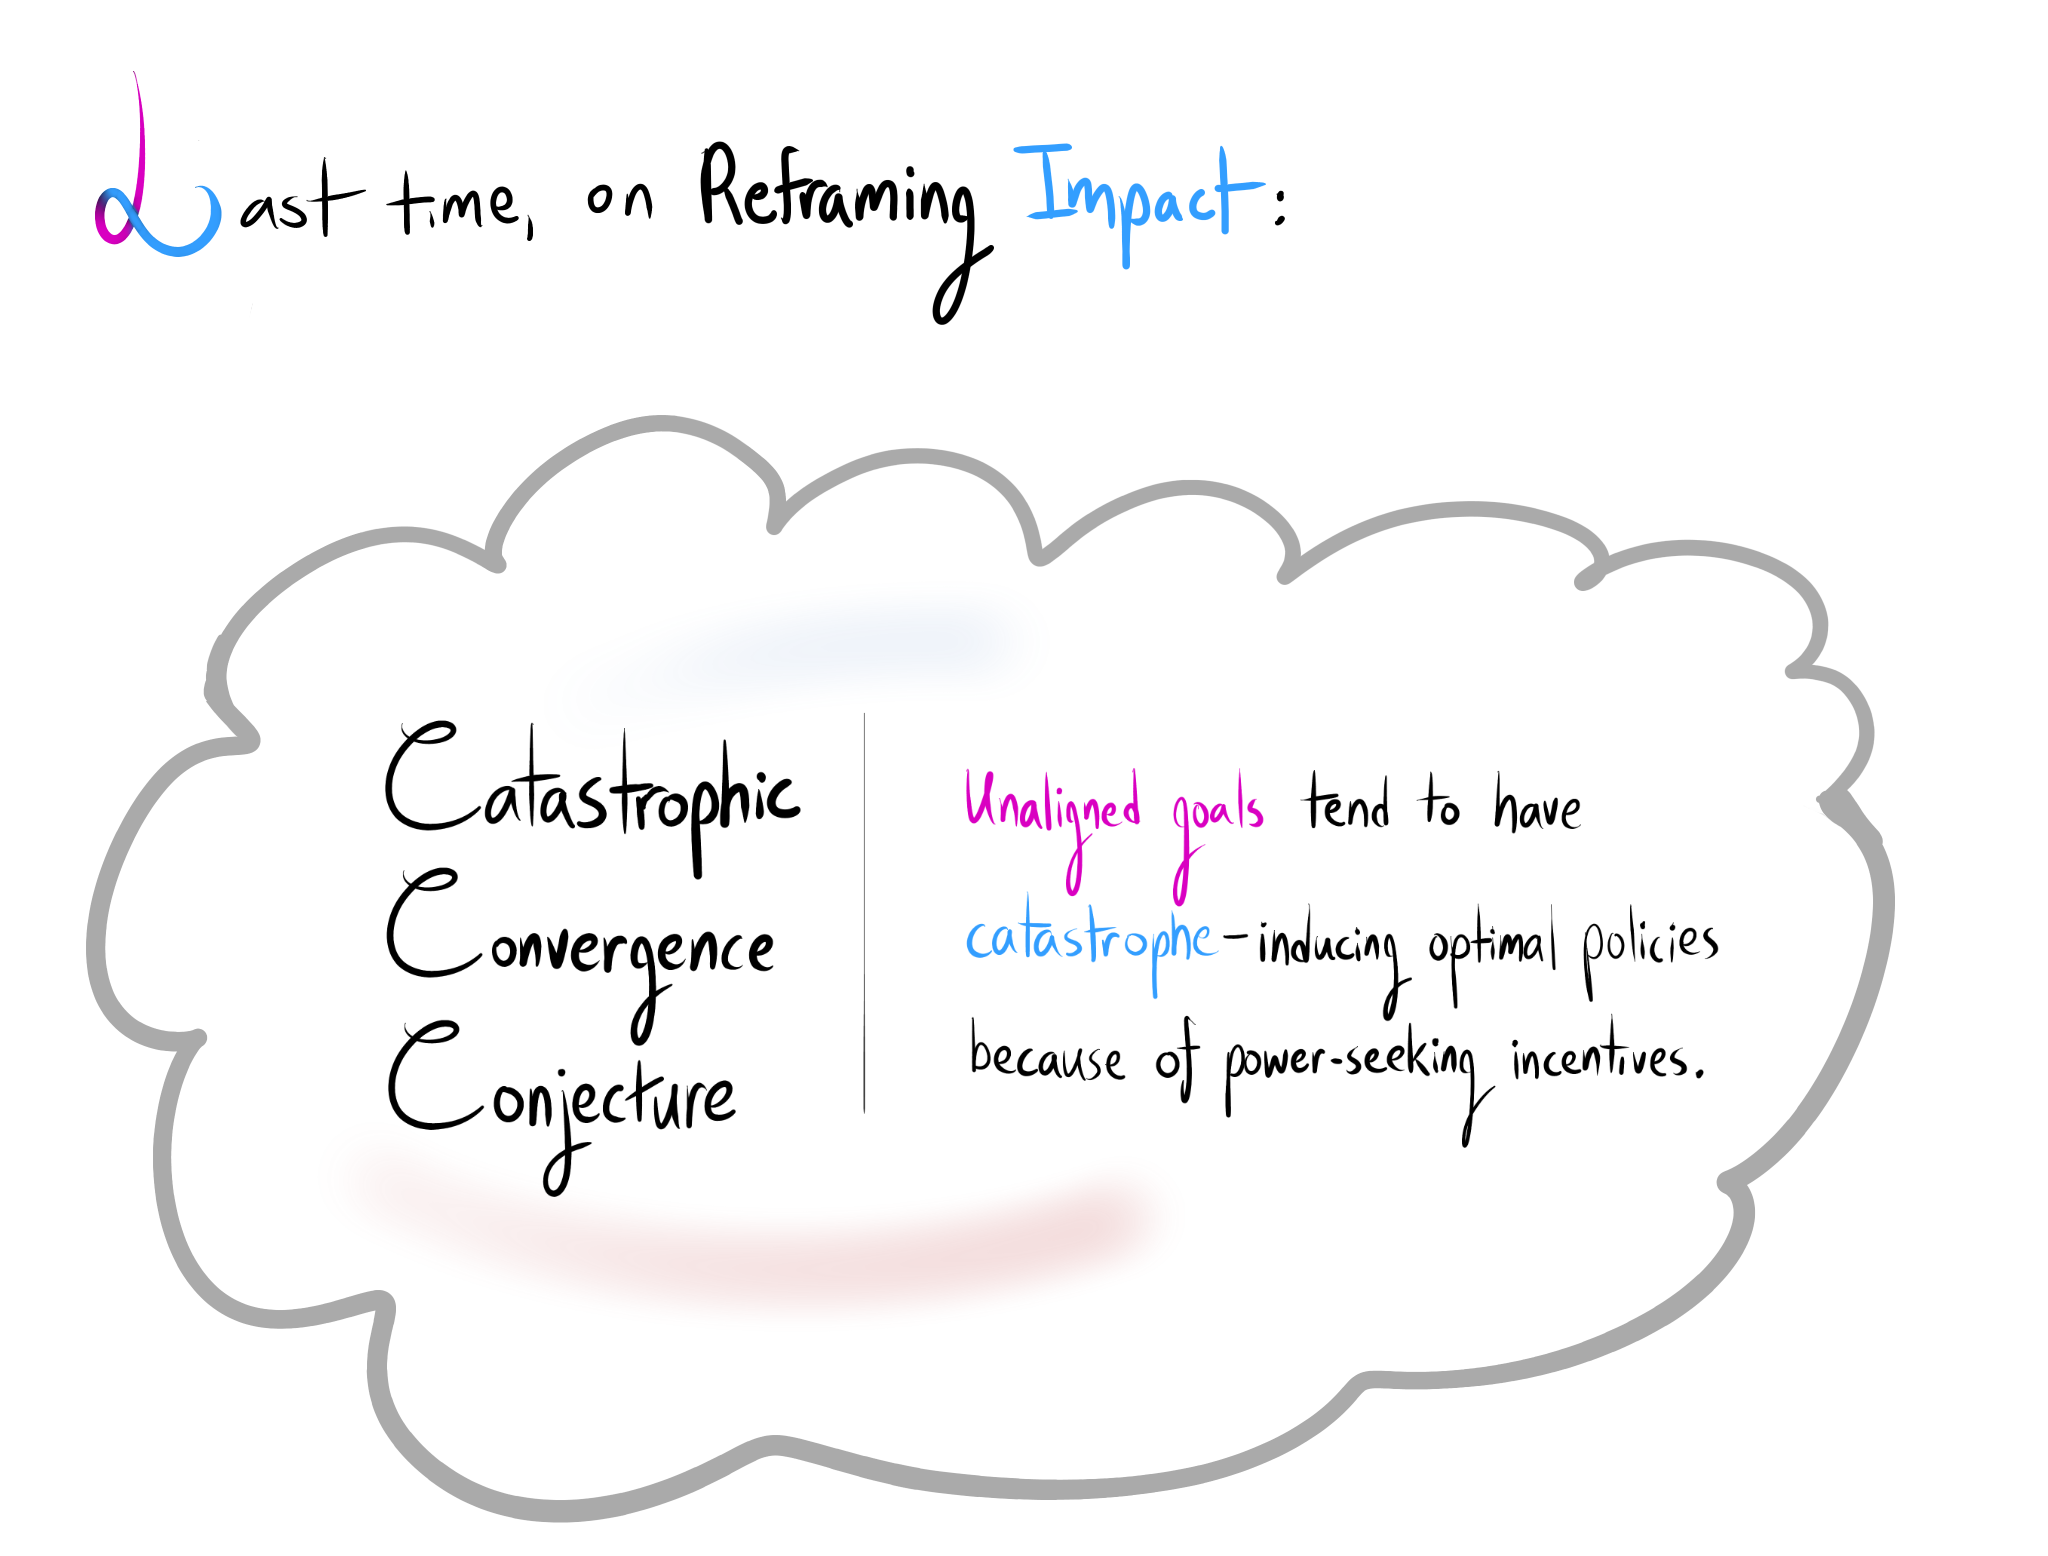 Last time, on Reframing Impact:
Catastrophic
Convergence
Conjecture
Unaligned goals tend to have
catastrophe-inducing optimal policies
because of power-seeking incentives.